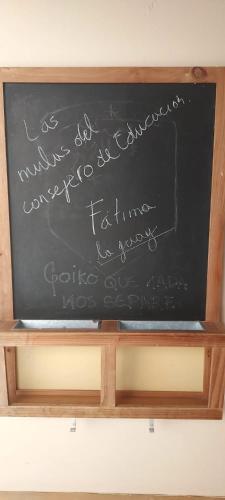 Las
mulas del
consejero de Educación.
Fátima
la guay
Goiko QUE NADA
NOS SEPARE